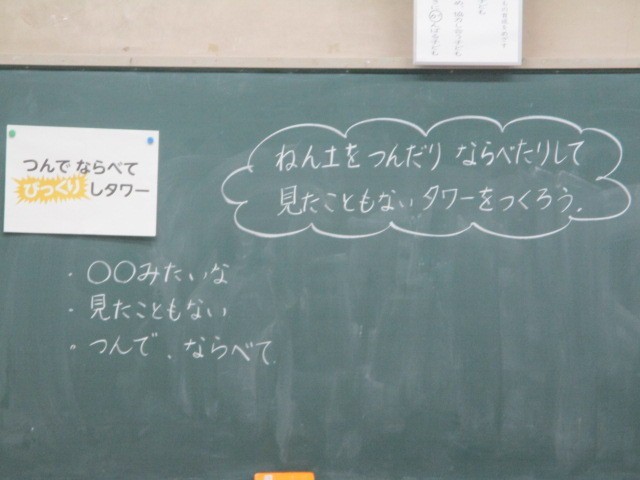 つんで ならべて
びっくりしタワー
ねん土をつんだり ならべたりして
見たこともないタワーをつくろう.
・〇〇みたいな
・見たこともない
・つんで、ならべて